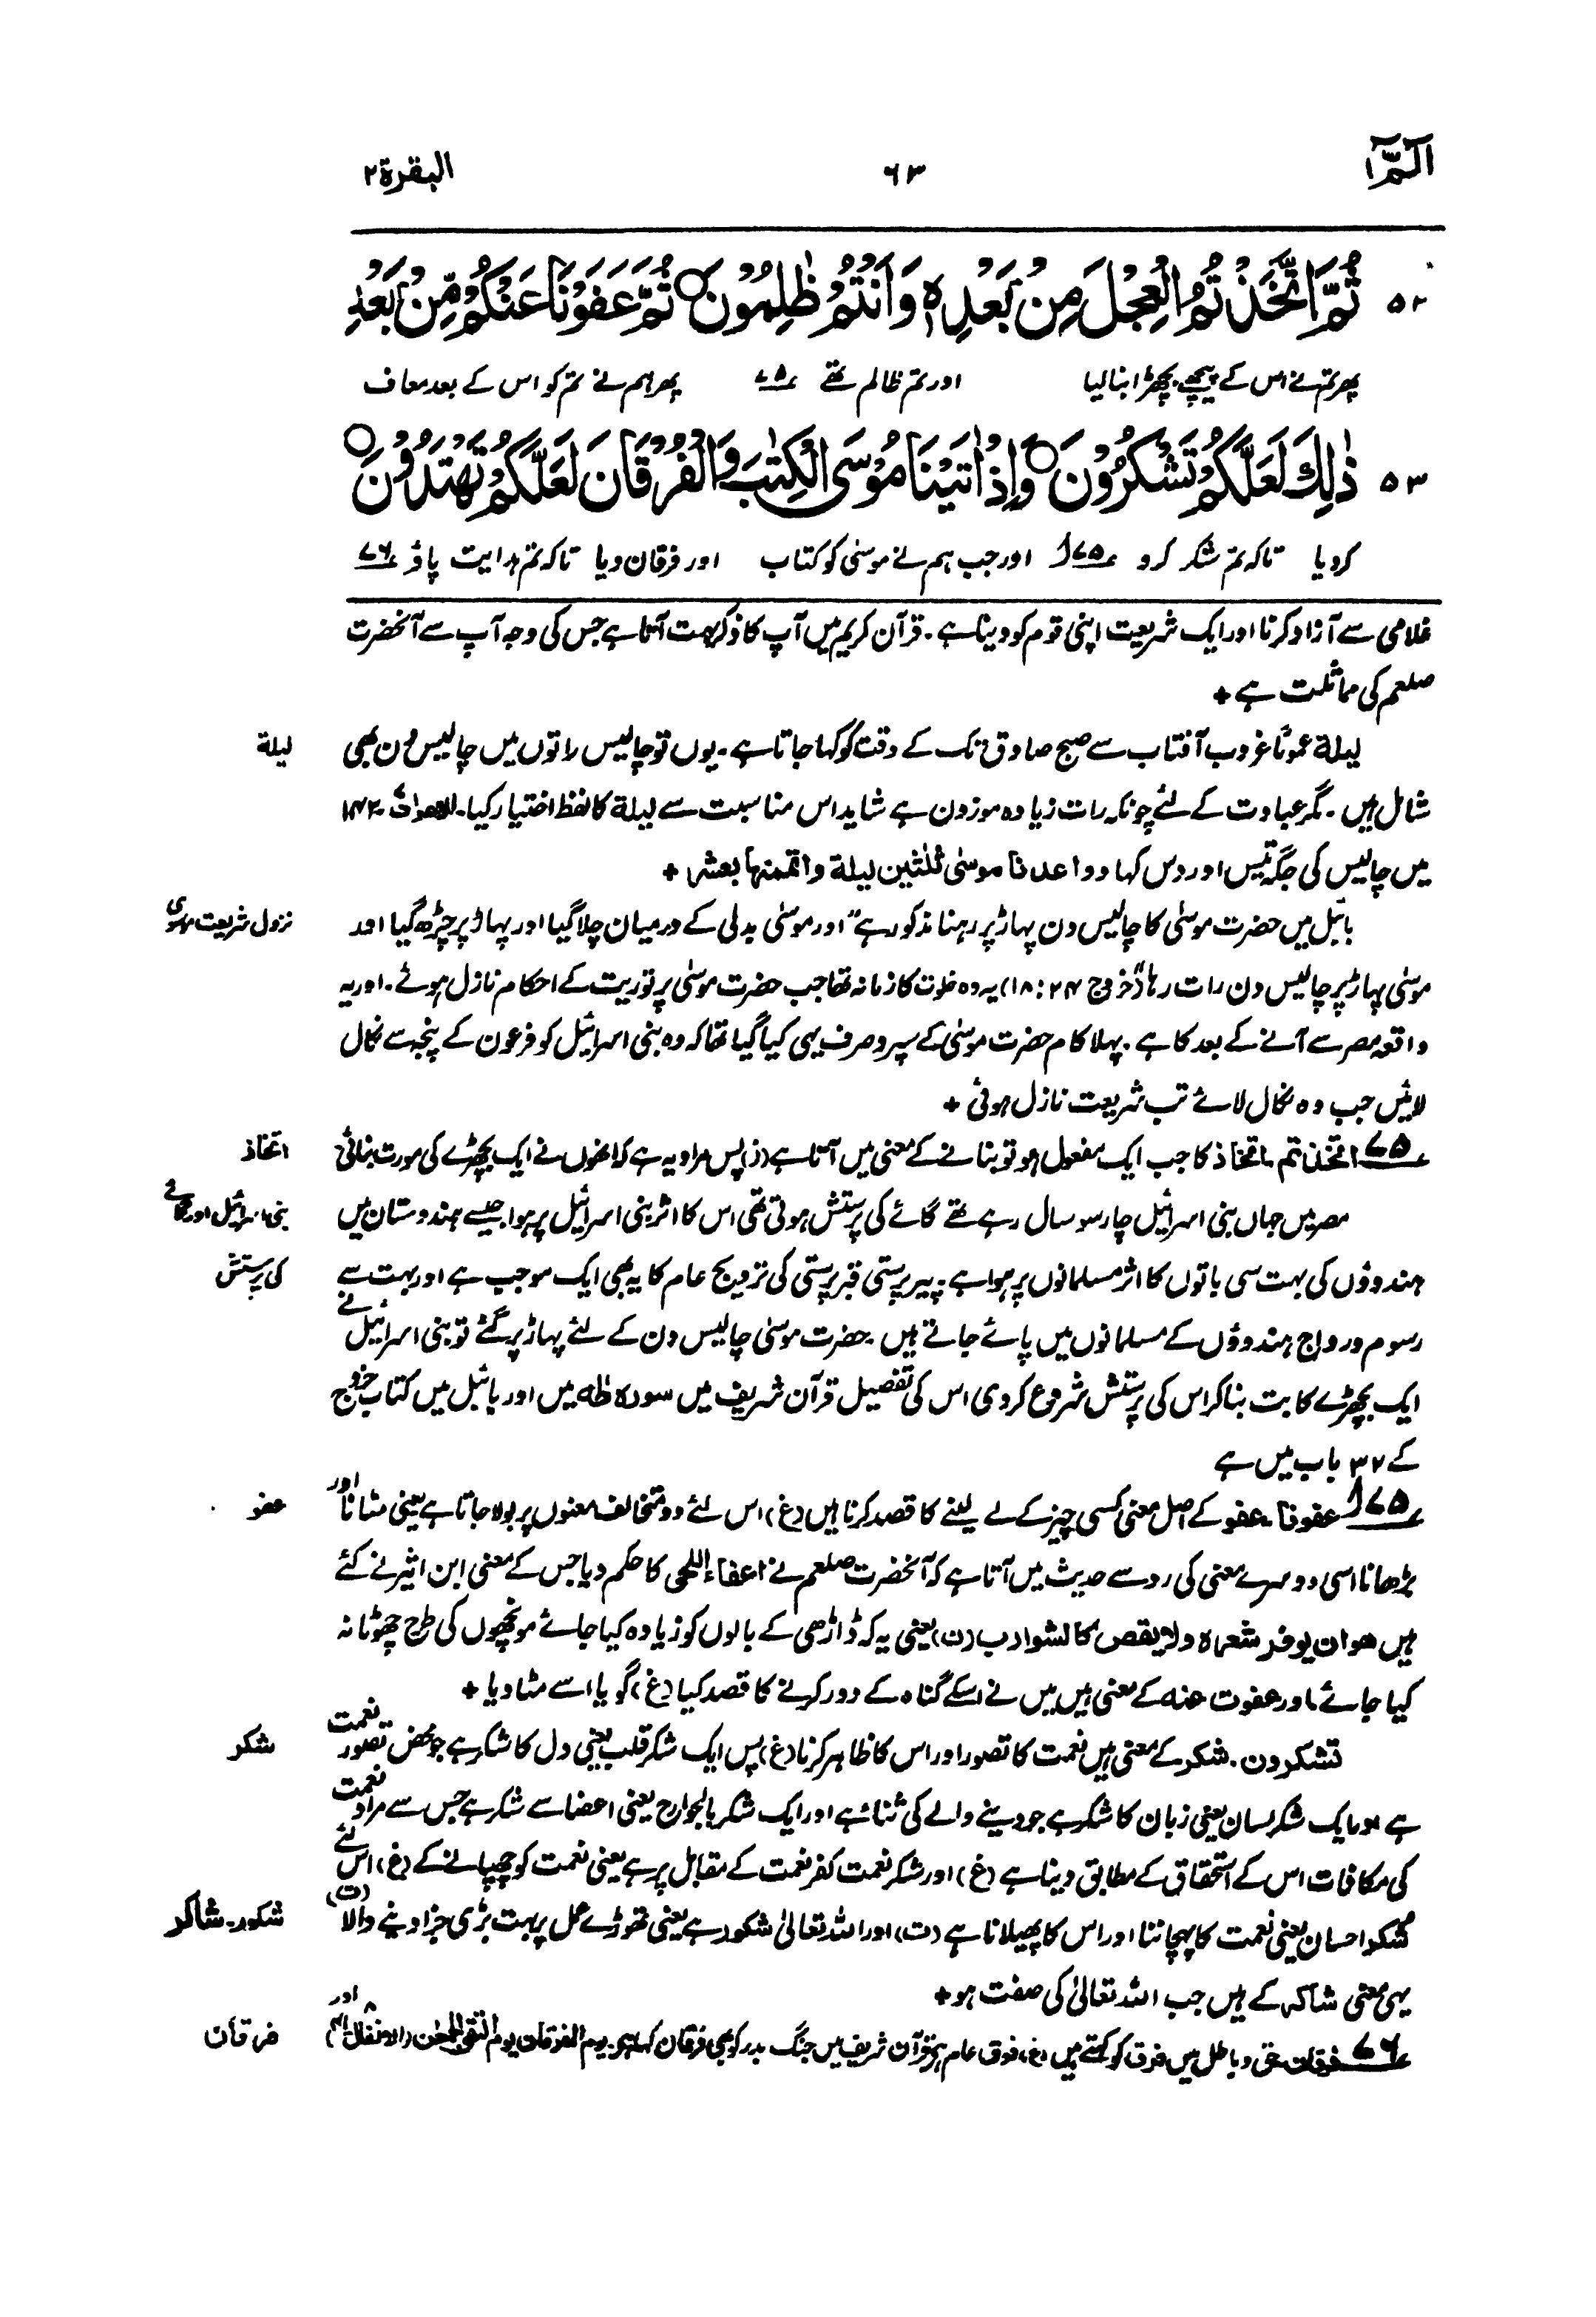 الٓمّٓ ۱
۶۳
البقرة ۲
ثُمَّ اتَّخَذْتُمُ الْعِجْلَ مِنْۢ بَعْدِهٖ وَاَنْتُمْ ظٰلِمُوْنَ ○ ثُمَّ عَفَوْنَا عَنْكُمْ مِّنْۢ بَعْدِ
۵۲
پھر تم نے اس کے پیچھے بچھڑا بنا لیا اور تم ظالم تھے ۷۵ پھر ہم نے تم کو اس کے بعد معاف
ذٰلِكَ لَعَلَّكُمْ تَشْكُرُوْنَ ○ وَاِذْ اٰتَيْنَا مُوْسَى الْكِتٰبَ وَالْفُرْقَانَ لَعَلَّكُمْ تَهْتَدُوْنَ ○
۵۳
کر دیا تاکہ تم شکر کرو ۷۵ا اور جب ہم نے موسٰی کو کتاب اور فرقان دیا تاکہ تم ہدایت پاؤ ۷۶
غلامی سے آزاد کرنا اور ایک شریعت اپنی قوم کو دینا ہے۔ قرآن کریم میں آپ کا ذکر بہت آتا ہے جس کی وجہ آپ سے آنحضرت
صلعم کی مماثلت ہے +
لیلة عموماً غروب آفتاب سے صبح صادق تک کے وقت کو کہا جاتا ہے۔ یوں تو چالیس راتوں میں چالیس دن بھی
لیلة
شامل ہیں۔ مگر عبادت کے لئے چونکہ رات زیادہ موزون ہے شاید اس مناسبت سے لیلة کا لفظ اختیار کیا۔ الاعراف ۱۴۲
میں چالیس کی جگہ تیس اور دس کہا و واعدنا موسیٰ ثلثین لیلة واتممنها بعشر +
بائبل میں حضرت موسٰی کا چالیس دن پہاڑ پر رہنا مذکور ہے "اور موسٰی بدلی کے درمیان چلا گیا اور پہاڑ پر چڑھ گیا اور
نزول شریعت موسوی
موسٰی پہاڑ پر چالیس دن رات رہا" (خروج ۲۴: ۱۸) یہ وہ خلوت کا زمانہ تھا جب حضرت موسٰی پر توریت کے احکام نازل ہوئے۔ اور یہ
واقعہ مصر سے آنے کے بعد کا ہے۔ پہلا کام حضرت موسٰی کے سپرد صرف یہی کیا گیا تھا کہ وہ بنی اسرائیل کو فرعون کے پنجہ سے نکال
لائیں جب وہ نکال لائے تب شریعت نازل ہوئی +
۷۵ اتخذتم۔ اتخاذ کا جب ایک مفعول ہو تو بنانے کے معنی میں آتا ہے (ز) پس مراد یہ ہے کہ انھوں نے ایک بچھڑے کی مورت بنائی
اتخاذ
مصر میں جہاں بنی اسرائیل چار سو سال رہے تھے گائے کی پرستش ہوتی تھی اس کا اثر بنی اسرائیل پر ہوا جیسے ہندوستان میں
بنی اسرائیل اور گائے
ہندوؤں کی بہت سی باتوں کا اثر مسلمانوں پر ہوا ہے۔ پیر پرستی قبر پرستی کی ترویج عام کا یہ بھی ایک موجب ہے اور بہت سے
کی پرستش
رسوم و رواج ہندوؤں کے مسلمانوں میں پائے جاتے ہیں۔ حضرت موسٰی چالیس دن کے لئے پہاڑ پر گئے تو بنی اسرائیل نے
ایک بچھڑے کا بت بنا کر اس کی پرستش شروع کر دی اس کی تفصیل قرآن شریف میں سورہ طٰہٰ میں اور بائبل میں کتاب خروج
کے ۳۲ باب میں ہے
۷۵ا عفونا۔ عفو کے اصل معنی کسی چیز کے لے لینے کا قصد کرنا ہیں (غ) اس لئے دو متخالف معنوں پر بولا جاتا ہے یعنی مٹانا اور
عفو
بڑھانا اسی دوسرے معنی کی رو سے حدیث میں آتا ہے کہ آنحضرت صلعم نے اعفاء اللحی کا حکم دیا جس کے معنی ابن اثیر نے کئے
ہیں هوان یوفر شعرہ ولا یقص کالشوارب (ن) یعنی یہ کہ ڈاڑھی کے بالوں کو زیادہ کیا جائے مونچھوں کی طرح چھوٹا نہ
کیا جائے۔ اور عفوت عنه کے معنی ہیں میں نے اسکے گناہ کے دور کرنے کا قصد کیا (غ) گویا اسے مٹا دیا +
تشکرون۔ شکر کے معنی ہیں نعمت کا تصور اور اس کا ظاہر کرنا (غ) پس ایک شکر قلب یعنی دل کا شکر ہے جو محض تصور نعمت
شکر
ہے اور ایک شکر لسان یعنی زبان کا شکر ہے جو دینے والے کی ثناء ہے اور ایک شکر بالجوارح یعنی اعضا سے شکر ہے جس سے مراد نعمت
کی مکافات اس کے استحقاق کے مطابق دینا ہے (غ) اور شکر نعمت کفر نعمت کے مقابل پر ہے یعنی نعمت کو چھپانے کے (غ) اس لئے
شکر احسان یعنی نعمت کا پہچاننا اور اس کا پھیلانا ہے (ت) اور اللہ تعالیٰ شکور ہے یعنی تھوڑے عمل پر بہت بڑی جزا دینے والا (ت)
شکور۔ شاکر
یہی معنی شاکر کے ہیں جب اللہ تعالیٰ کی صفت ہو +
۷۶ فرقان۔ حق و باطل میں فرق کو کہتے ہیں (غ) فوق عام ہے قرآن شریف میں جنگ بدر کو بھی فرقان کہا ہے۔ یوم الفرقان یوم التقی الجمعٰن (الانفال ۴۱) اور
فرقان